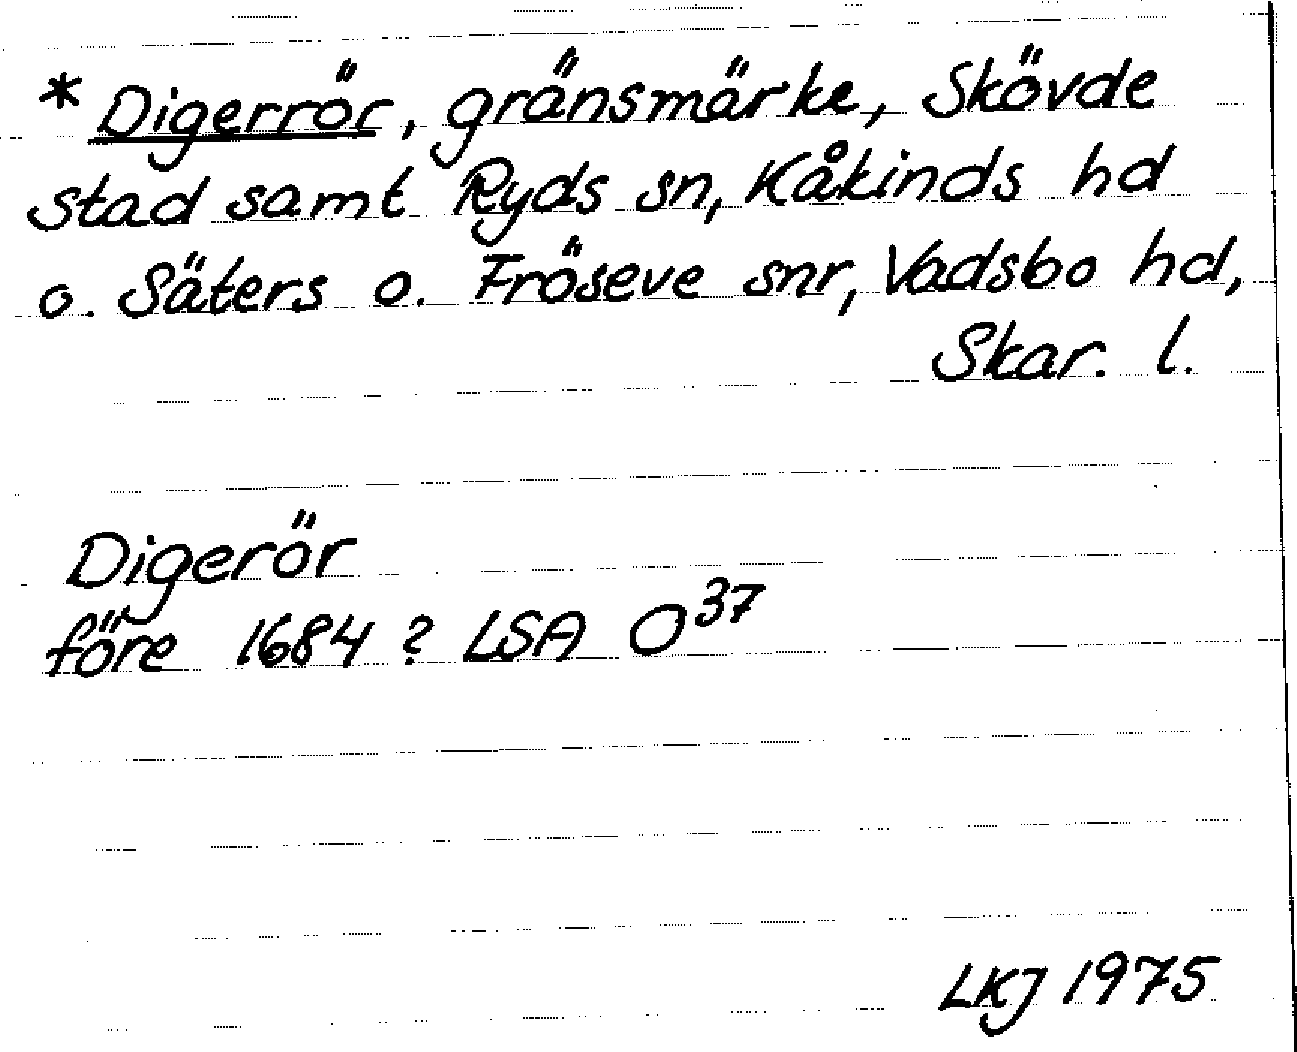 * Digerrör, gränsmärke, Skövde
stad samt Ryds sn, Kåkinds hd
o. Säters o. Fröseve snr, Vadsbo hd,
Skar. l.
Digerör
före 1684? LSA O³⁷
LKJ 1975